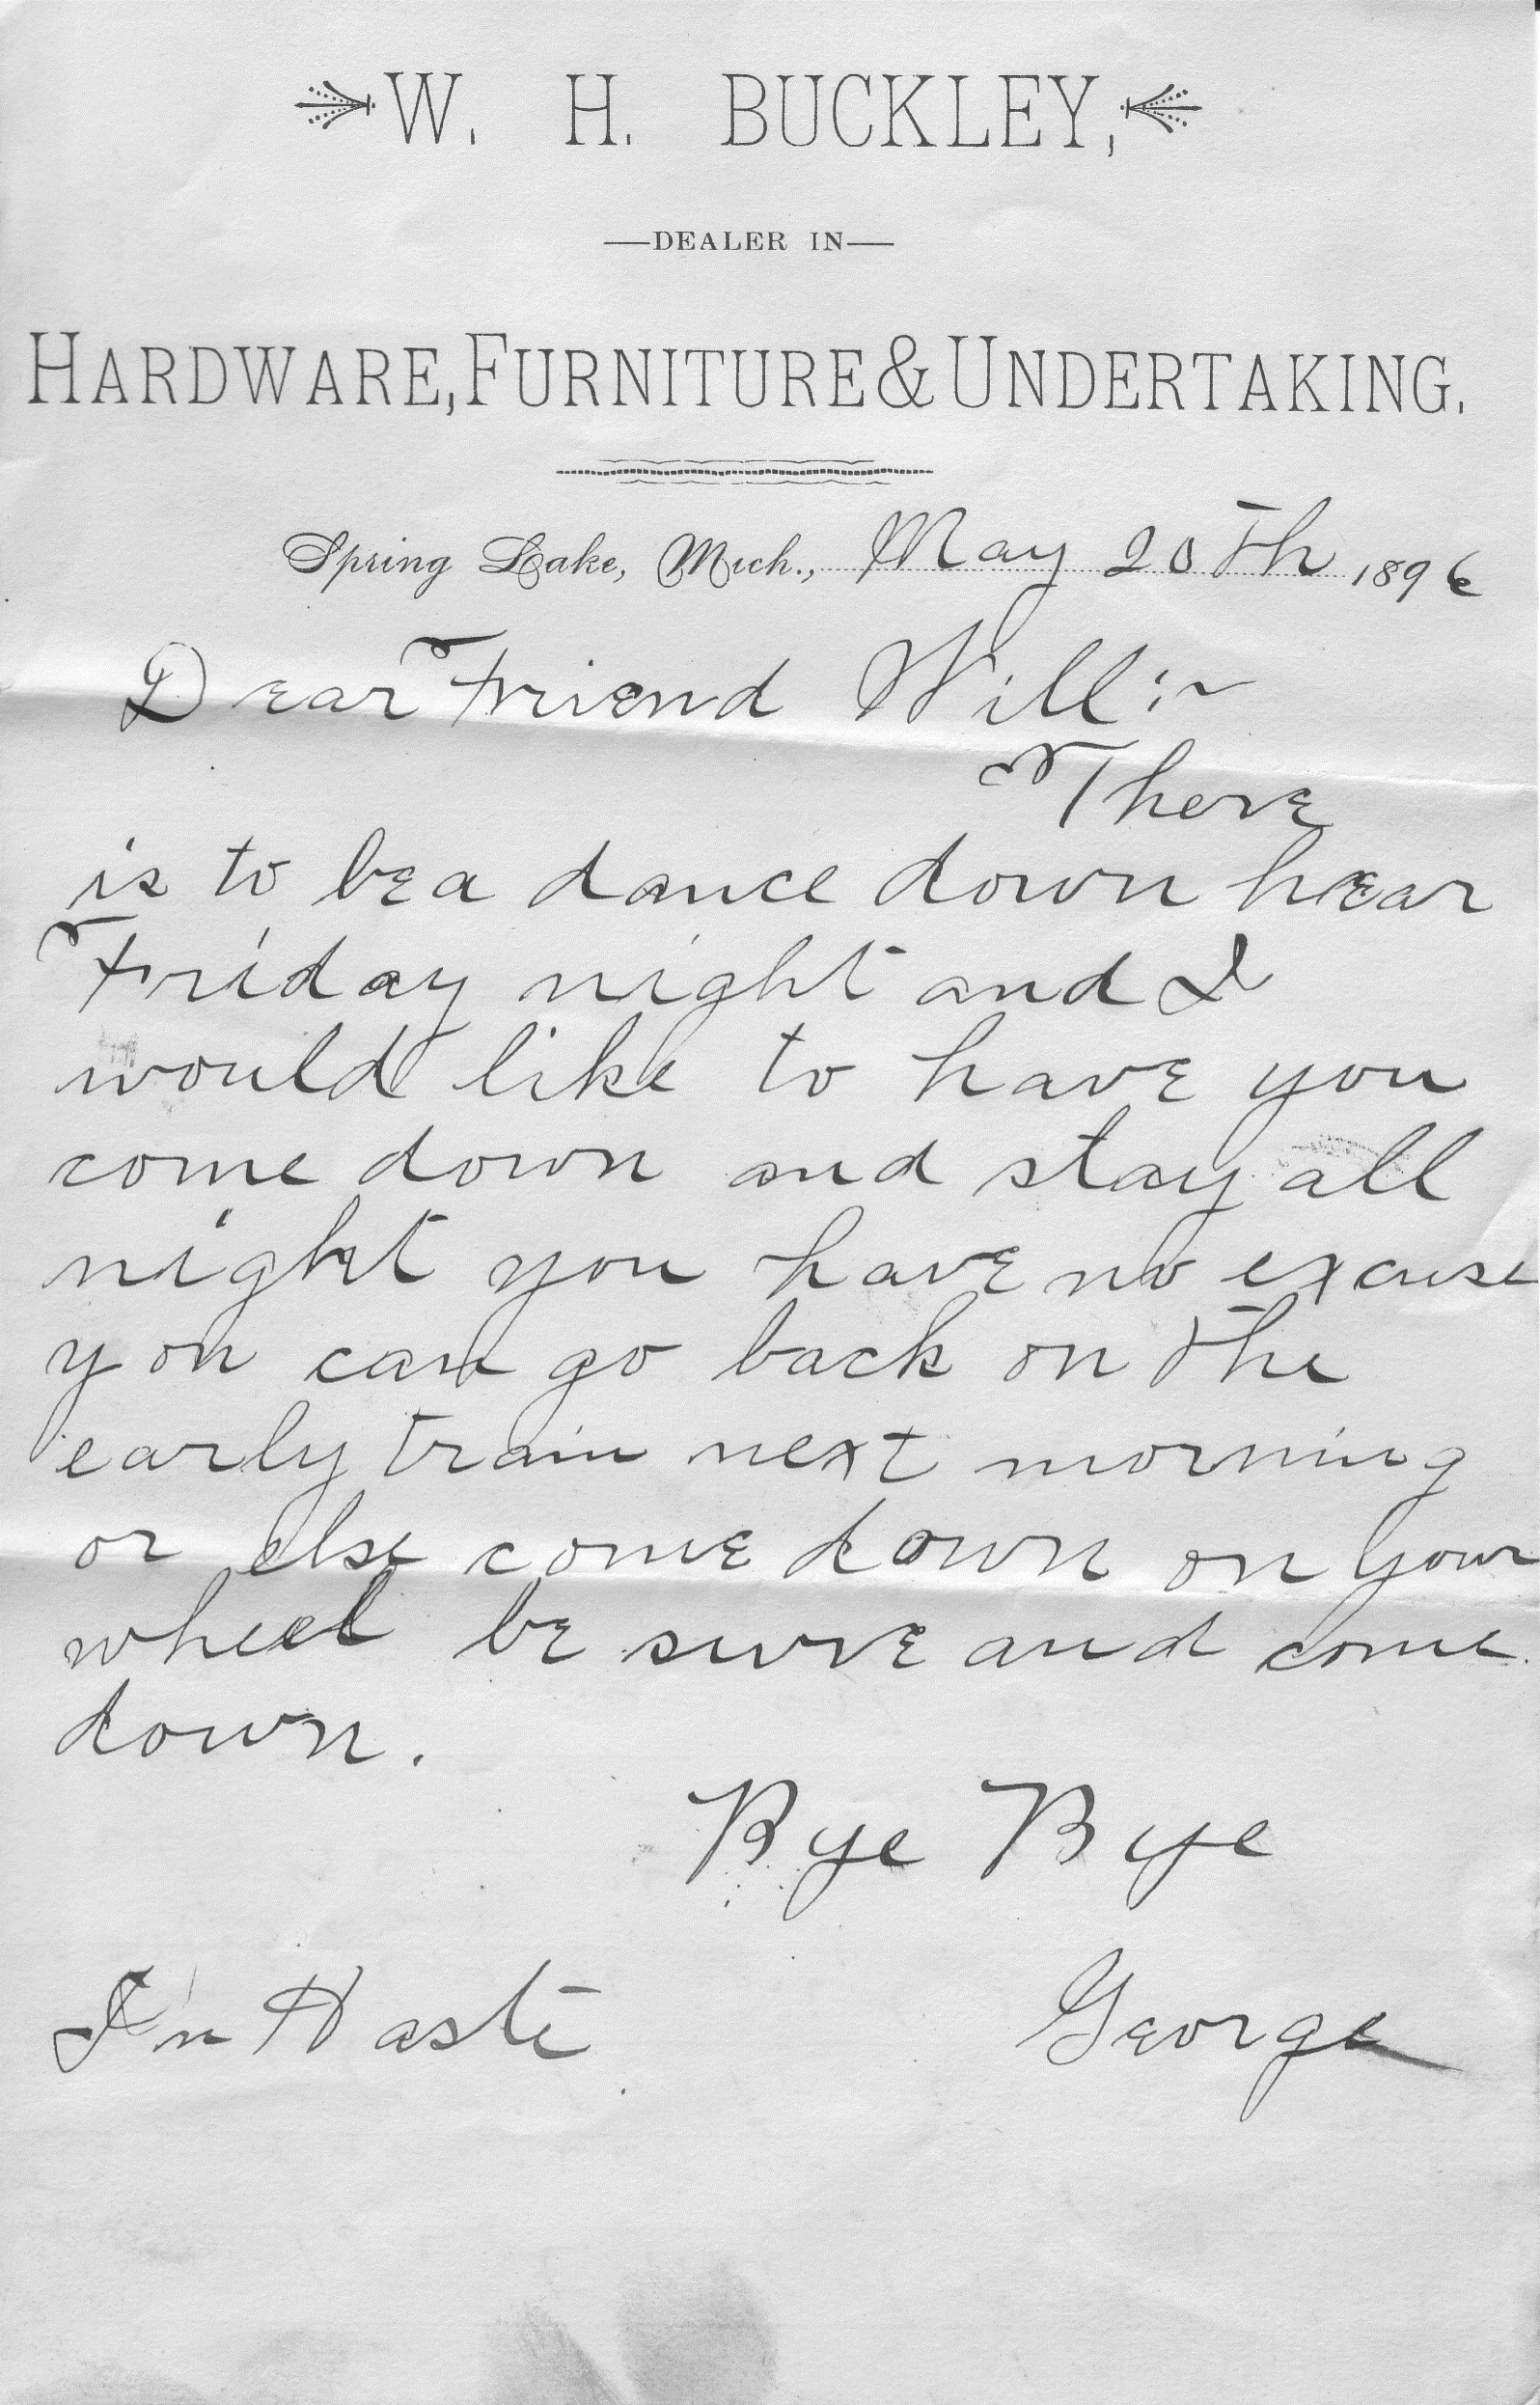 W. H. BUCKLEY,
—DEALER IN—
HARDWARE, FURNITURE & UNDERTAKING.
Spring Lake, Mich., May 20th 1896
Dear Friend Will:~
There
is to be a dance down hear
Friday night and I
would like to have you
come down and stay all
night you have no excuse
you can go back on the
early train next morning
or else come down on your
wheel be surre and come
down.
Bye Bye
In Haste George